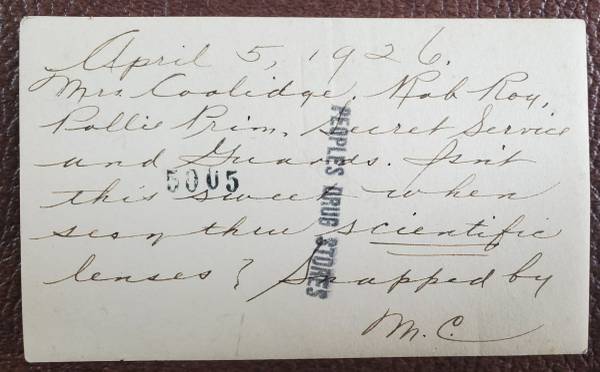 April 5, 1926.
Mrs. Coolidge. Rob Roy,
Pollie Prim, Secret Service
and Guards. Isn't
this sweet when
seen thru scientific
lenses? Snapped by
M.C.
5005
PEOPLES DRUG STORES